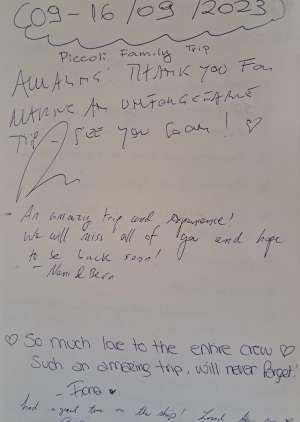 (09-16/09/2023)
Piccoli Family Trip
AMAZING! THANK YOU FOR
MAKING AN UNFORGETTABLE
TRIP - SEE YOU SOON! ♡
- An amazing trip and experience!
We will miss all of you and hope
to be back soon!
- Nani & Bern
♡ So much love to the entire crew ♡
Such an amazing trip, will never forget!
- Fiona ♥
had a great time on the ship! Loved